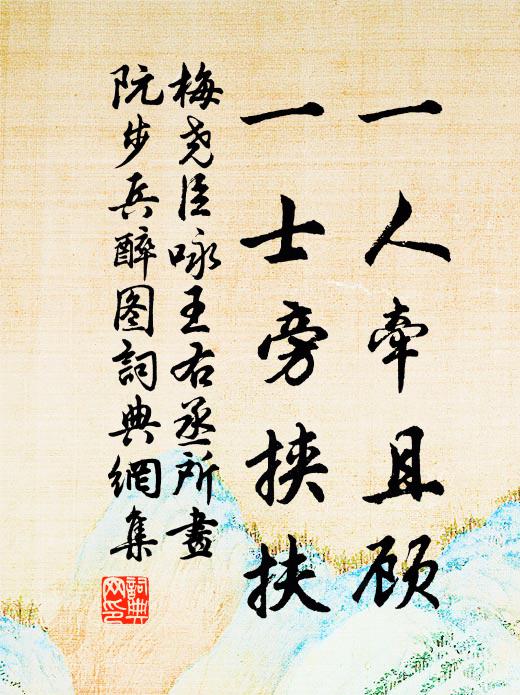 一人牵且顾
一士旁挟扶
梅尧臣咏王右丞所画
阮步兵醉图词典網集
詞典
网印